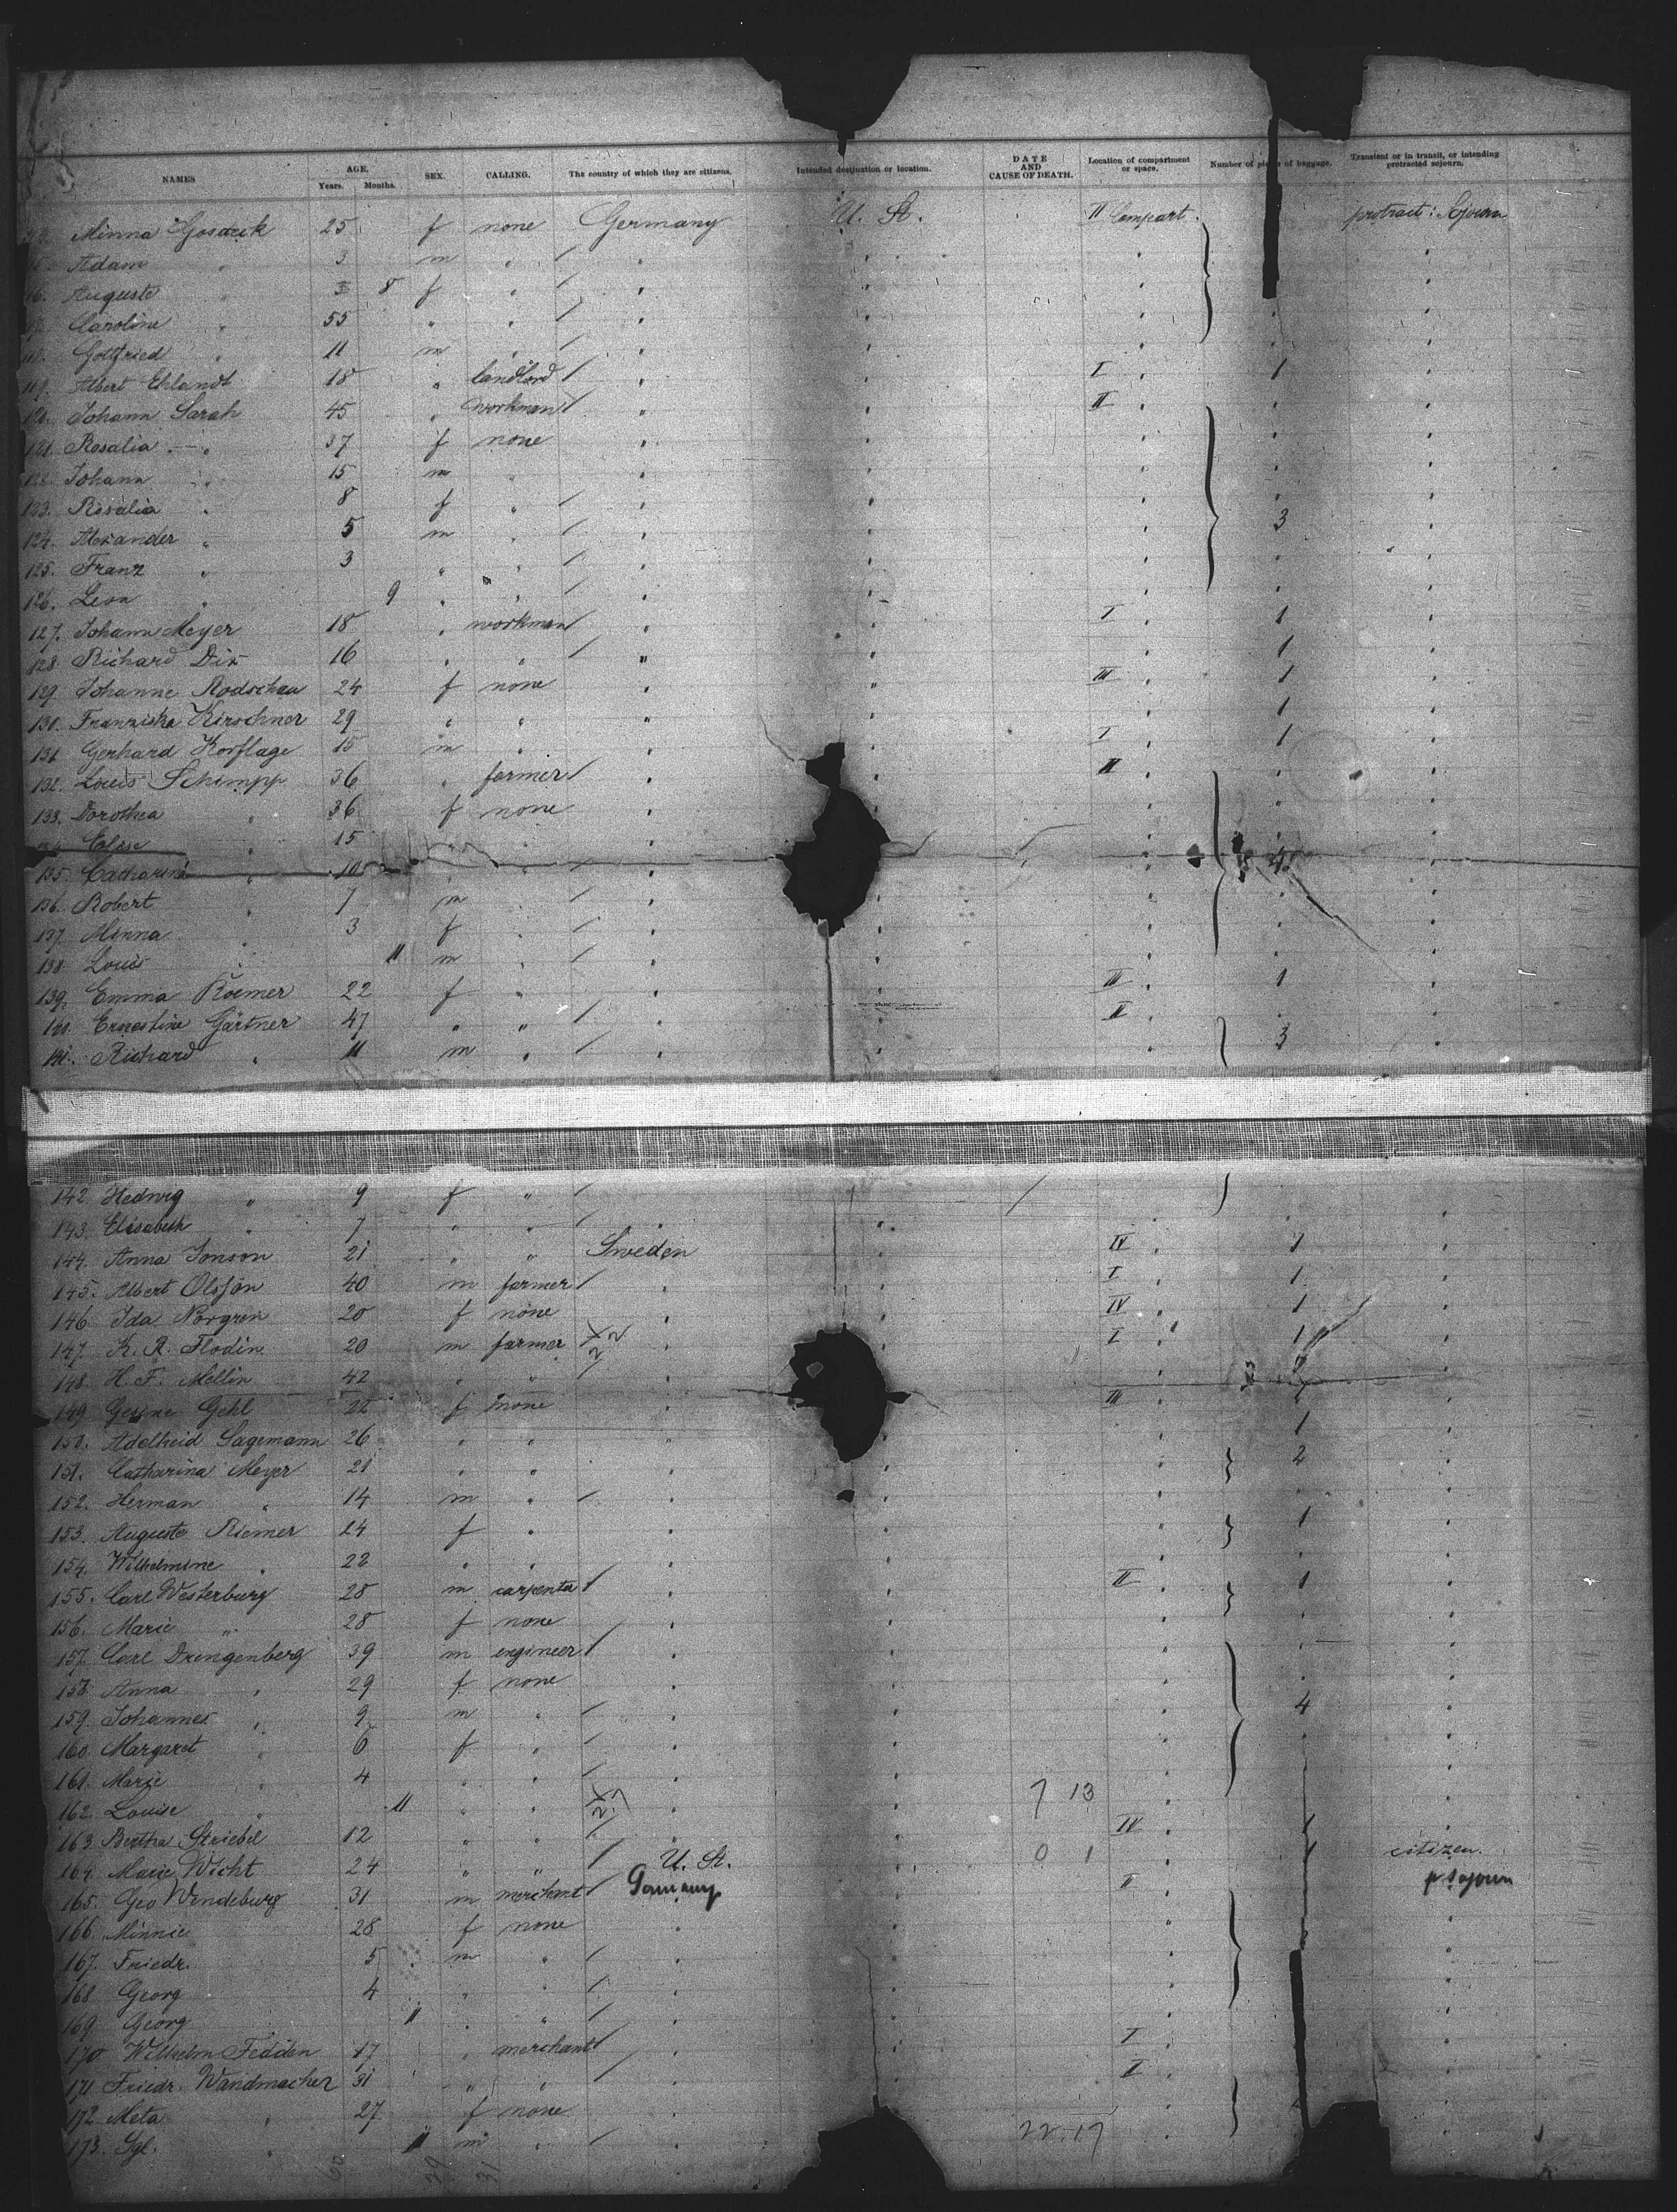 NAMES AGE. Years. Months. SEX. CALLING. The country of which they are citizens. Intended destination or location. DATE AND CAUSE OF DEATH. Location of compartment or space. Number of pieces of baggage. Transient or in transit, or intending protracted sojourn.
Minna 25 f none Germany U. St. II Compart. protract: Sojourn
Adam " 3 m " / "
16. Auguste " 8 f " / "
Caroline " 55 " " / "
Gottfried " 11 m " / "
119. Albert Ehlandt 18 " landlord / " I " 1 "
120. Johann Sarah 45 " workman / " II "
121. Rosalia " 37 f none "
122. Johann " 15 m " "
123. Rosalia " 8 f " / "
124. Alexander " 5 m " / " 3 "
125. Franz " 3 " " / "
126. Leon " 9 " " / "
127. Johann Meyer 18 " workman / " I " 1 "
128. Richard Dix 16 " " / " 1 "
129. Johanne Rodschau 24 f none " III " 1 "
130. Franziska Kirschner 29 " " " 1 "
131. Gerhard Korflage 15 m " " I " 1 "
132. Louis Schimpp 36 " farmer / " II "
133. Dorothea " 36 f none "
15 " "
135. Catharina " 10 " / " 4
136. Robert " 7 m " / "
137. Minna " 3 f " / "
138. Louis " 11 m " / "
139. Emma Roemer 22 f " " III " 1 "
140. Ernestine Gärtner 47 " " / " II "
141. Richard " 11 m " / " 3 "
142. Hedwig " 9 f " /
143. Elisabeth " 7 " " / "
144. Anna Jonson 21 " " Sweden " IV " 1 "
145. Albert Olsson 40 m farmer / " I " 1 "
146. Ida Norgren 20 f none " IV " 1 "
147. K. A. Flodin 20 m farmer " I " 1 "
148. H. F. Mellin 42 " " / "
149. Gesine Gehl 22 f none " III " 1 "
150. Adelheid Sagemann 26 " " " 1 "
151. Catharina Meyer 21 " " " 2 "
152. Herman " 14 m " / "
153. Auguste Riemer 24 f " " 1 "
154. Wilhelmine " 22 " " "
155. Carl Westerburg 28 m carpenter / " II " 1 "
156. Marie " 28 f none "
157. Carl Dringenberg 39 m engineer / "
158. Anna " 29 f none "
159. Johannes " 9 m " / " 4 "
160. Margaret " 6 f " / "
161. Marie " 4 " " / "
162. Louise " 11 " " " 7 13
163. Bertha Striebel 12 " " / " IV " 1 "
164. Marie Wicht 24 " " / U. St. 0 1 " 1 citizen.
165. Geo Windeburg 31 m merchant / Germany II " p Sojourn
166. Minnie 28 f none "
167. Friedr. 5 m " / "
168. Georg 4 " " / "
169. Georg 11 " " / "
170. Wilhelm Fedden 17 " merchant / " I "
171. Friedr. Wandmacher 31 " " / " II "
172. Meta " 27 f none "
173. " 11 m " / " 22.17
29 31